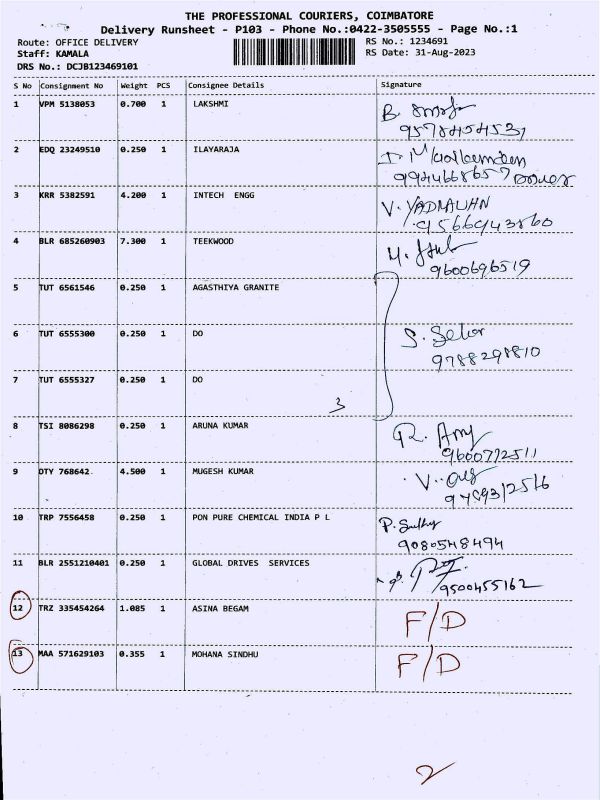 THE PROFESSIONAL COURIERS, COIMBATORE
Delivery Runsheet - P103 - Phone No.:0422-3505555 - Page No.:1
Route: OFFICE DELIVERY RS No.: 1234691
Staff: KAMALA RS Date: 31-Aug-2023
DRS No.: DCJB123469101
S No Consignment No Weight PCS Consignee Details Signature
1 VPM 5138053 0.700 1 LAKSHMI B.
2 EDQ 23249510 0.250 1 ILAYARAJA
9944668657
3 KRR 5382591 4.200 1 INTECH ENGG V.
4 BLR 685260903 7.300 1 TEEKWOOD M.
9600696519
5 TUT 6561546 0.250 1 AGASTHIYA GRANITE
6 TUT 6555300 0.250 1 DO S. Sekar
9788298810
7 TUT 6555327 0.250 1 DO
3
8 TSI 8086298 0.250 1 ARUNA KUMAR R.
9600772511
9 DTY 768642 4.500 1 MUGESH KUMAR V.
10 TRP 7556458 0.250 1 PON PURE CHEMICAL INDIA P L P.
9080548494
11 BLR 2551210401 0.250 1 GLOBAL DRIVES SERVICES
9500455162
12 TRZ 335454264 1.085 1 ASINA BEGAM F/D
13 MAA 571629103 0.355 1 MOHANA SINDHU F/D
2